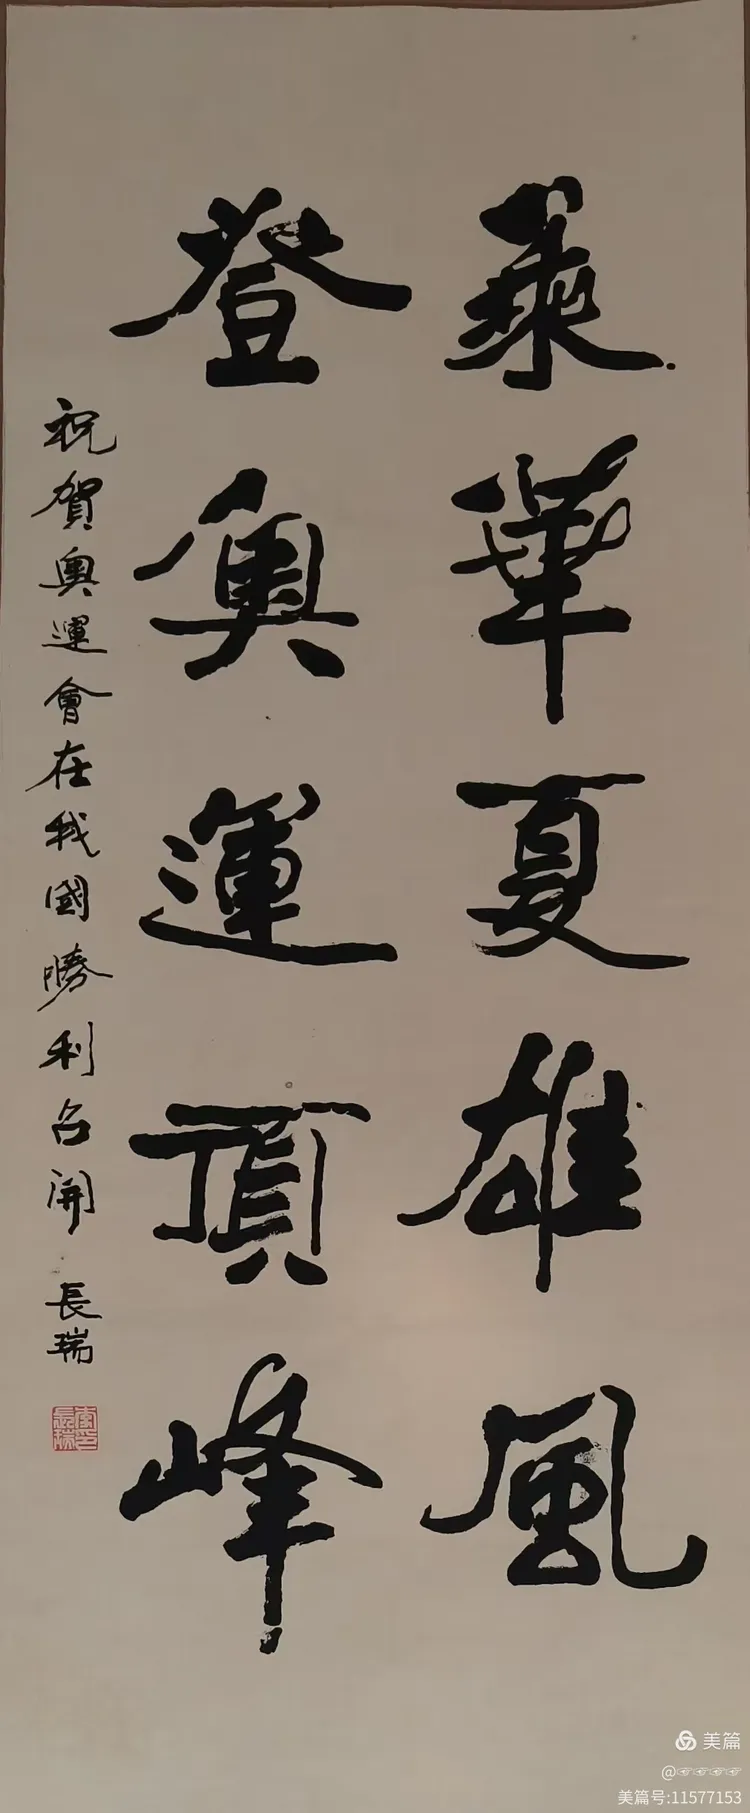 乘華夏雄風
登奧運頂峰
祝賀奧運會在我國勝利召開
長瑞
美篇
@☜☜☜☜
美篇号:11577153